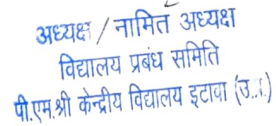 अध्यक्ष / नामित अध्यक्ष
विद्यालय प्रबंध समिति
पी.एम.श्री केन्द्रीय विद्यालय इटावा